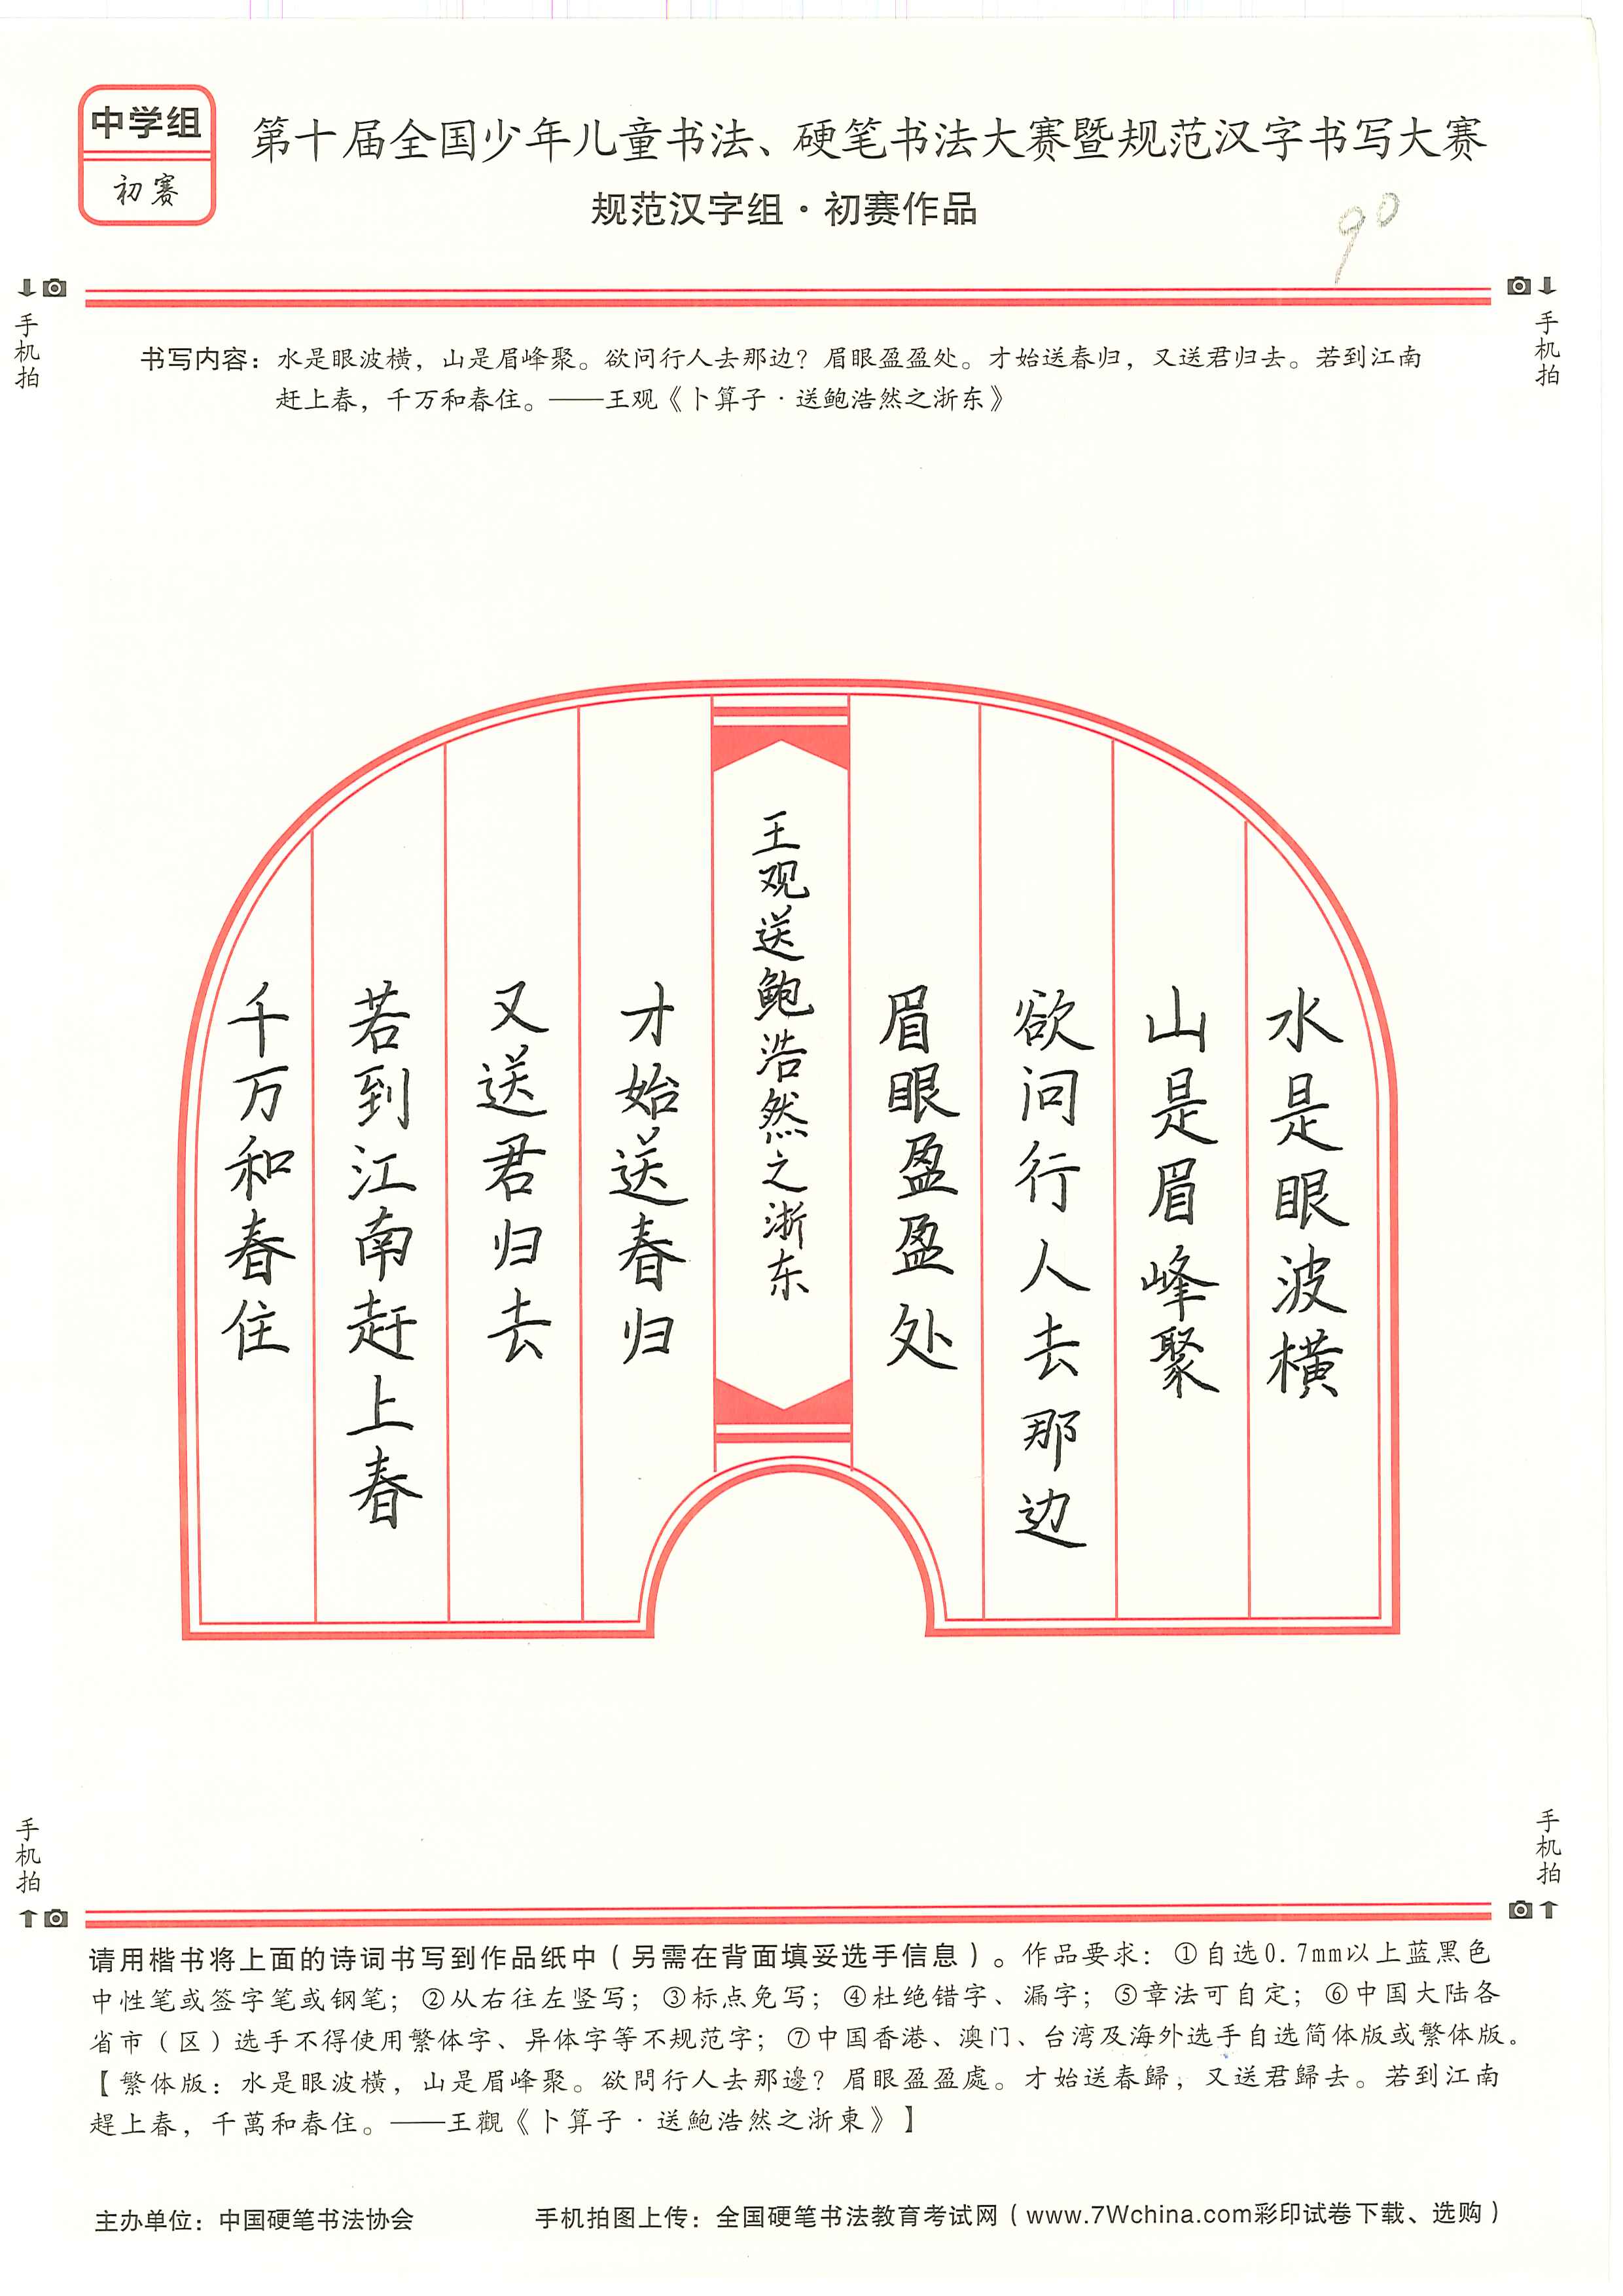 中学组
初赛
第十届全国少年儿童书法、硬笔书法大赛暨规范汉字书写大赛
规范汉字组·初赛作品
90
手机拍
手机拍
书写内容：水是眼波横，山是眉峰聚。欲问行人去那边？眉眼盈盈处。才始送春归，又送君归去。若到江南
赶上春，千万和春住。——王观《卜算子·送鲍浩然之浙东》
水是眼波横
山是眉峰聚
欲问行人去那边
眉眼盈盈处
王观送鲍浩然之浙东
才始送春归
又送君归去
若到江南赶上春
千万和春住
手机拍
手机拍
请用楷书将上面的诗词书写到作品纸中（另需在背面填妥选手信息）。作品要求：①自选0.7mm以上蓝黑色
中性笔或签字笔或钢笔；②从右往左竖写；③标点免写；④杜绝错字、漏字；⑤章法可自定；⑥中国大陆各
省市（区）选手不得使用繁体字、异体字等不规范字；⑦中国香港、澳门、台湾及海外选手自选简体版或繁体版。
【繁体版：水是眼波橫，山是眉峰聚。欲問行人去那邊？眉眼盈盈處。才始送春歸，又送君歸去。若到江南
趕上春，千萬和春住。——王觀《卜算子·送鮑浩然之浙東》】
主办单位：中国硬笔书法协会
手机拍图上传：全国硬笔书法教育考试网（www.7Wchina.com彩印试卷下载、选购）